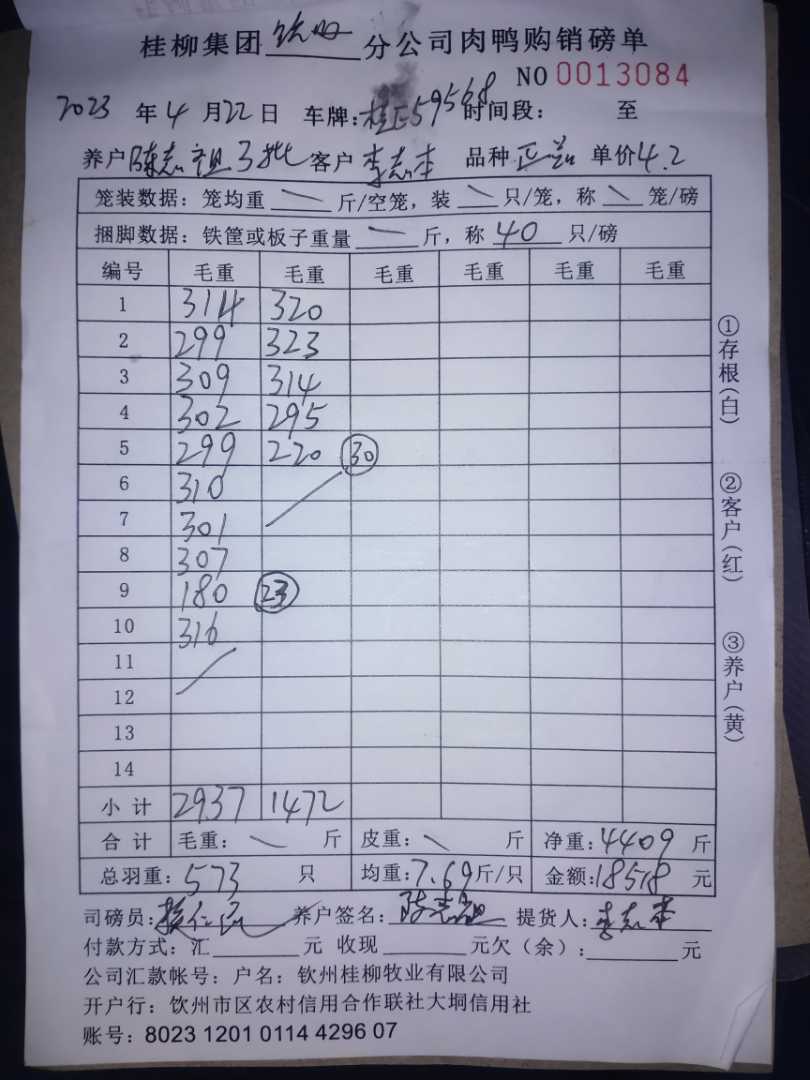 桂柳集团 钦州 分公司肉鸭购销磅单
NO 0013084
2023 年 4 月 22 日 车牌: 桂E59568 时间段: 至
养户 陈志祖3批 客户 李志本 品种 单价 4.2
笼装数据: 笼均重 \ 斤/空笼, 装 \ 只/笼, 称 \ 笼/磅
捆脚数据: 铁筐或板子重量 \ 斤, 称 40 只/磅
编号 毛重 毛重 毛重 毛重 毛重 毛重
1 314 320
2 299 323
3 309 314
4 302 295
5 299 220 30
6 310
7 301
8 307
9 180 23
10 316
11
12
13
14
小计 2937 1472
合计 毛重: \ 斤 皮重: \ 斤 净重: 4409 斤
总羽重: 573 只 均重: 7.69 斤/只 金额: 18518 元
司磅员: 养户签名: 陈志祖 提货人: 李志本
付款方式: 汇 元 收现 元欠(余): 元
公司汇款帐号: 户名: 钦州桂柳牧业有限公司
开户行: 钦州市区农村信用合作联社大垌信用社
账号: 8023 1201 0114 4296 07
①存根(白)
②客户(红)
③养户(黄)